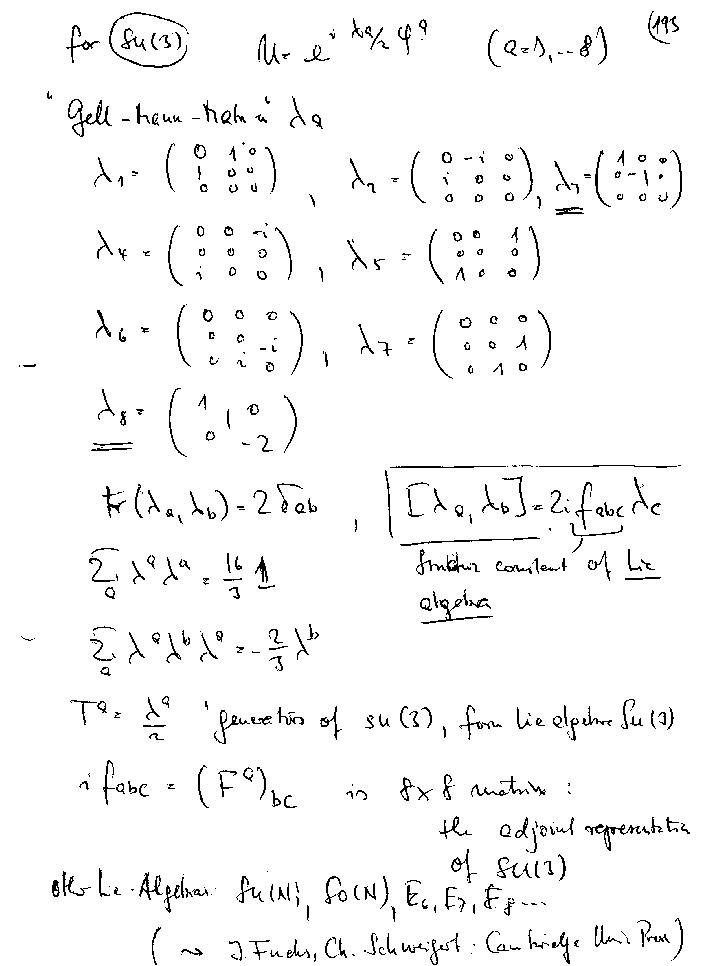 for SU(3) U = e^{i λa/2 φ^a} (a=1,...8) (193
"Gell-Mann-Matr." λ_a
λ_1 = ( 0 1 0 ; 1 0 0 ; 0 0 0 ), λ_2 = ( 0 -i 0 ; i 0 0 ; 0 0 0 ), λ_3 = ( 1 0 0 ; 0 -1 0 ; 0 0 0 )
λ_4 = ( 0 0 -i ; 0 0 0 ; i 0 0 ), λ_5 = ( 0 0 1 ; 0 0 0 ; 1 0 0 )
λ_6 = ( 0 0 0 ; 0 0 -i ; 0 i 0 ), λ_7 = ( 0 0 0 ; 0 0 1 ; 0 1 0 )
λ_8 = ( 1 1 0 ; 0 -2 )
tr(λ_a, λ_b) = 2 δ_ab, [λ_a, λ_b] = 2i f_abc λ_c
Σ_a λ^a λ^a = 16/3 1
structure constant of Lie
algebra
Σ_a λ^a λ^b λ^a = -2/3 λ^b
T^a = λ^a/2 generators of su(3), form Lie algebra SU(3)
i f_abc = (F^a)_bc is 8x8 matrix:
the adjoint representation
of SU(3)
other Lie-Algebras SU(N), SO(N), E_6, E_7, E_8 ...
(~> J. Fuchs, Ch. Schweigert: Cambridge Univ. Press)